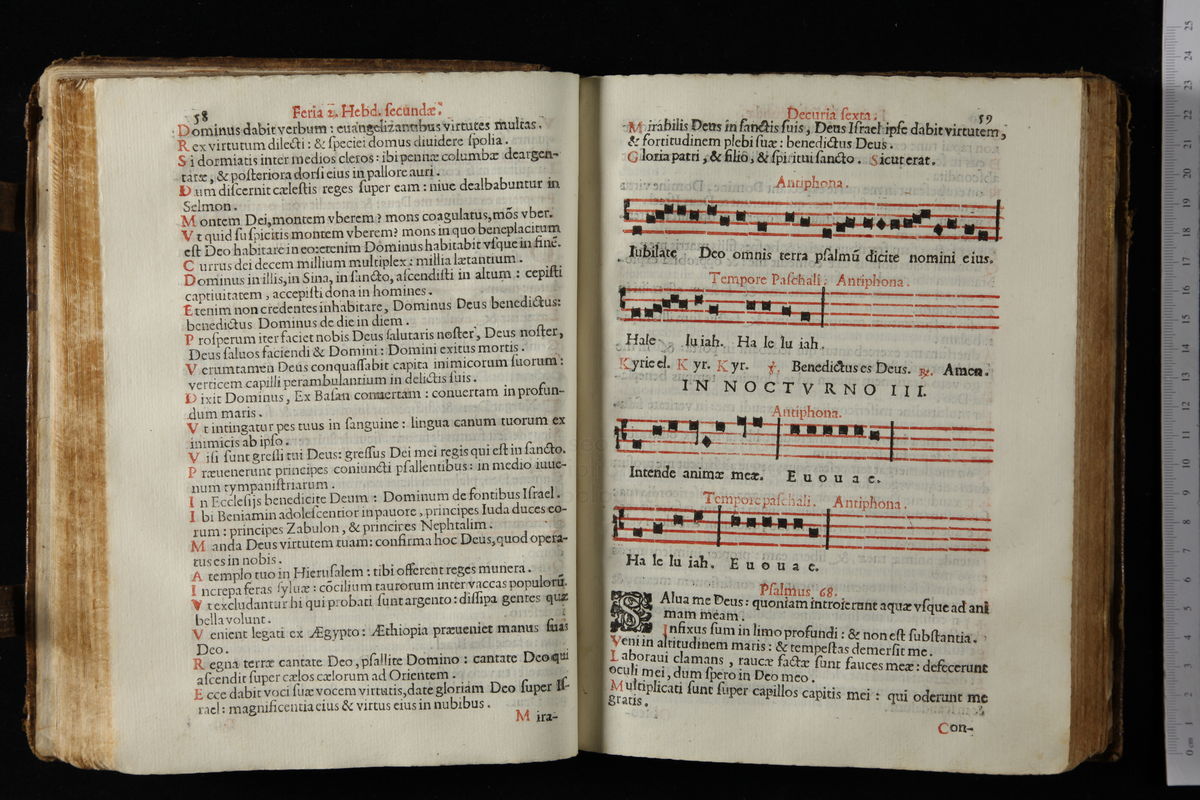 58
Feria 2. Hebd. secundæ.
Dominus dabit verbum : euangelizantibus virtutes multas.
Rex virtutum dilecti : & speciei domus diuidere spolia.
Si dormiatis inter medios cleros : ibi pennæ columbæ deargen-
tatæ, & posteriora dorsi eius in pallore auri.
Dum discernit cælestis reges super eam : niue dealbabuntur in
Selmon.
Montem Dei, montem vberem? mons coagulatus, mõs vber.
Vt quid suspicitis montem vberem? mons in quo beneplacitum
est Deo habitare in eo: etenim Dominus habitabit vsque in finẽ.
Currus dei decem millium multiplex : millia lætantium.
Dominus in illis, in Sina, in sancto, ascendisti in altum : cepisti
captiuitatem, accepisti dona in homines.
Etenim non credentes inhabitare, Dominus Deus benedictus:
benedictus Dominus de die in diem.
Prosperum iter faciet nobis Deus salutaris noster, Deus noster,
Deus saluos faciendi & Domini : Domini exitus mortis.
Verumtamen Deus conquassabit capita inimicorum suorum :
verticem capilli perambulantium in delictis suis.
Dixit Dominus, Ex Basan conuertam : conuertam in profun-
dum maris.
Vt intingatur pes tuus in sanguine : lingua canum tuorum ex
inimicis ab ipso.
Visi sunt gressi tui Deus: gressus Dei mei regis qui est in sancto.
Præuenerunt principes coniuncti psallentibus: in medio iuue-
num tympanistriarum.
In Ecclesijs benedicite Deum : Dominum de fontibus Israel.
Ibi Beniamin adolescentior in pauore, principes Iuda duces eo-
rum : principes Zabulon, & principes Nephtalim.
Manda Deus virtutem tuam: confirma hoc Deus, quod opera-
tus es in nobis.
A templo tuo in Hierusalem : tibi offerent reges munera.
Increpa feras syluæ : cõcilium taurorum inter vaccas populorũ.
Vt excludantur hi qui probati sunt argento: dissipa gentes quæ
bella volunt.
Venient legati ex Ægypto: Æthiopia præueniet manus suas
Deo.
Regna terræ cantate Deo, psallite Domino : cantate Deo qui
ascendit super cælos cælorum ad Orientem.
Ecce dabit voci suæ vocem virtutis, date gloriam Deo super Is-
rael: magnificentia eius & virtus eius in nubibus.
Mira-
Decuria sexta.
59
Mirabilis Deus in sanctis suis, Deus Israel ipse dabit virtutem,
& fortitudinem plebi suæ : benedictus Deus.
Gloria patri, & filio, & spiritui sancto. Sicut erat.
Antiphona.
Iubilate Deo omnis terra psalmũ dicite nomini eius.
Tempore Paschali. Antiphona.
Hale lu iah. Ha le lu iah.
Kyrie el. Kyr. Kyr. ℣. Benedictus es Deus. ℟. Amen.
IN NOCTVRNO III.
Antiphona.
Intende animæ meæ. E u o u a e.
Tempore paschali. Antiphona.
Ha le lu iah. E u o u a e.
Psalmus 68.
SAlua me Deus: quoniam introierunt aquæ vsque ad ani
mam meam.
Infixus sum in limo profundi : & non est substantia.
Veni in altitudinem maris : & tempestas demersit me.
Laboraui clamans, raucæ factæ sunt fauces meæ: defecerunt
oculi mei, dum spero in Deo meo.
Multiplicati sunt super capillos capitis mei : qui oderunt me
gratis.
Con-